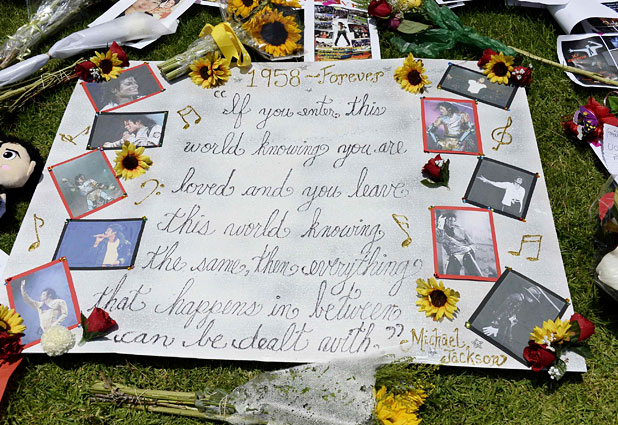 1958 - Forever
"If you enter this
world knowing you are
loved and you leave
this world knowing
the same, then everything
that happens in between
can be dealt with."
Michael
Jackson